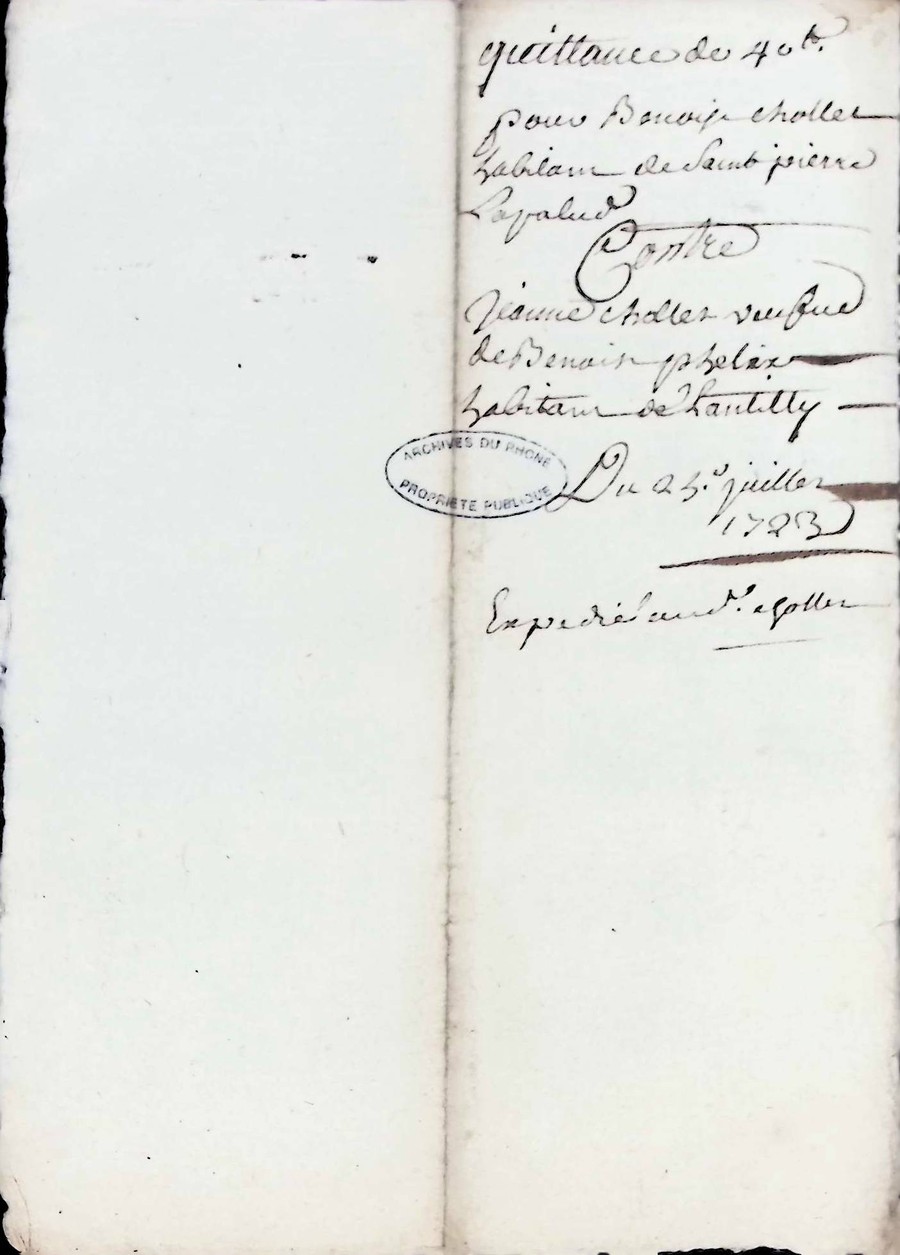 quittance de 40 lt.
pour Benoist chollet
habitant de Saint pierre
Lapalud
Contre
Jeanne chollet veufue
de Benoist phelix
habitant de Lantilly
ARCHIVES DU RHONE
PROPRIÉTÉ PUBLIQUE
Du 25e juillet
1723
Expedié aud.t chollet